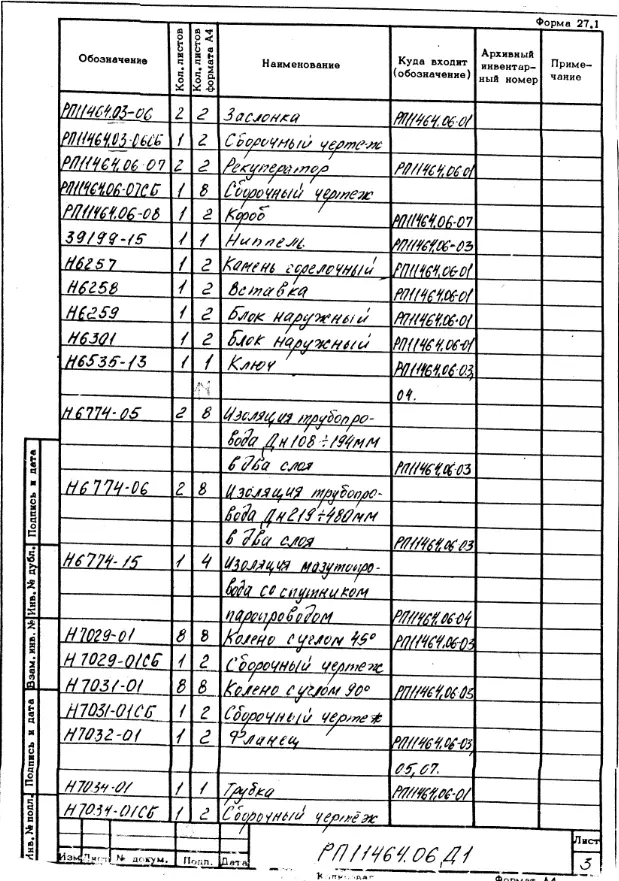 Форма 27.1
Обозначение Кол. листов Кол. листов формата А4 Наименование Куда входит (обозначение) Архивный инвентарный номер Примечание
РП11464.03-06 2 2 Заслонка РП11464.06-01
РП11464.03-06СБ 1 2 Сборочный чертеж
РП11464.06-07 2 2 Рекуператор РП11464.06-01
РП11464.06-07СБ 1 8 Сборочный чертеж
РП11464.06-08 1 2 Короб РП11464.06-07
39199-15 1 1 Ниппель РП11464.06-03
Н6257 1 2 Камень горелочный РП11464.06-01
Н6258 1 2 Вставка РП11464.06-01
Н6259 1 2 Блок наружный РП11464.06-01
Н6301 1 2 Блок наружный РП11464.06-01
Н6535-13 1 1 Ключ РП11464.06-03,
04.
Н6774-05 2 8 Изоляция трубопро-
вода Дн108÷194мм
в два слоя РП11464.06-03
Н6774-06 2 8 Изоляция трубопро-
вода Дн219÷480мм
в два слоя РП11464.06-03
Н6774-15 1 4 Изоляция мазутопро-
вода со спутником
паропроводом РП11464.06-04
Н7029-01 8 8 Колено с углом 45° РП11464.06-03
Н7029-01СБ 1 2 Сборочный чертеж
Н7031-01 8 8 Колено с углом 90° РП11464.06-03
Н7031-01СБ 1 2 Сборочный чертеж
Н7032-01 1 2 Фланец РП11464.06-03,
05, 07.
Н7034-01 1 1 Трубка РП11464.06-01
Н7034-01СБ 1 2 Сборочный чертёж
Подпись и дата
Инв. № дубл.
Взам. инв. №
Подпись и дата
Инв. № подл.
Изм Лист № докум. Подп. Дата
РП11464.06 Д1
Лист
3
Копировал Формат А4